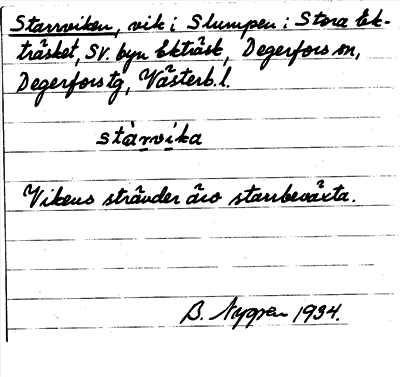 Starrviken, vik i Slumpen i Stora Ek-
träsket, SV. byn Ekträsk, Degerfors sn,
Degerfors tg, Västerb. l.
stàrvíka
Vikens stränder äro starrbeväxta.
B. Nygren 1934.